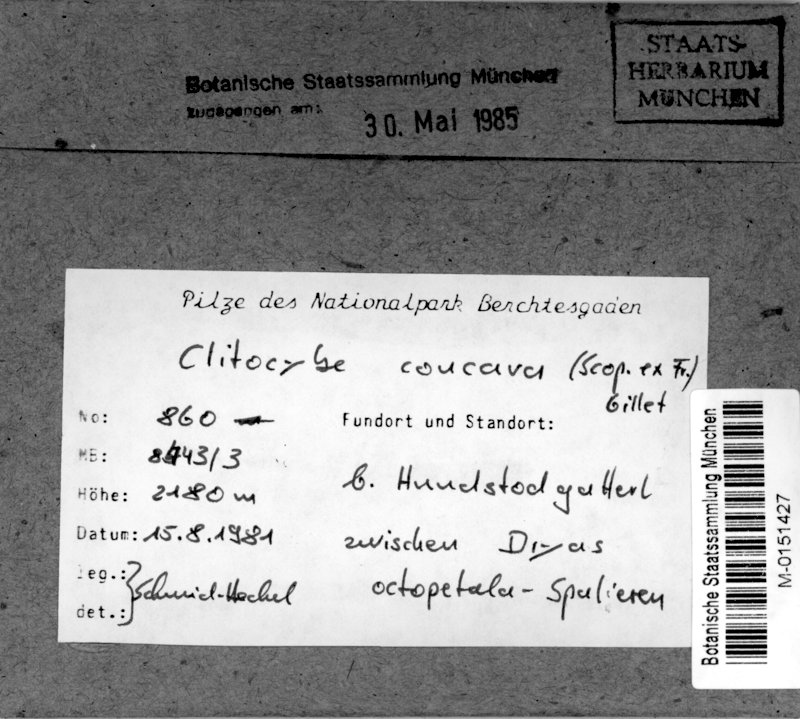 STAATS-
HERBARIUM
MÜNCHEN
Botanische Staatssammlung München
zugegangen am:
30. Mai 1985
Pilze des Nationalpark Berchtesgaden
Clitocybe concava (Scop. ex Fr.)
Gillet
No: 860
MB: 8443/3
Höhe: 2180 m
Datum: 15.8.1981
leg.:
det.:
Schmid-Heckel
Fundort und Standort:
b. Hundstodgatterl
zwischen Dryas
octopetala - Spalieren
Botanische Staatssammlung München
M-0151427